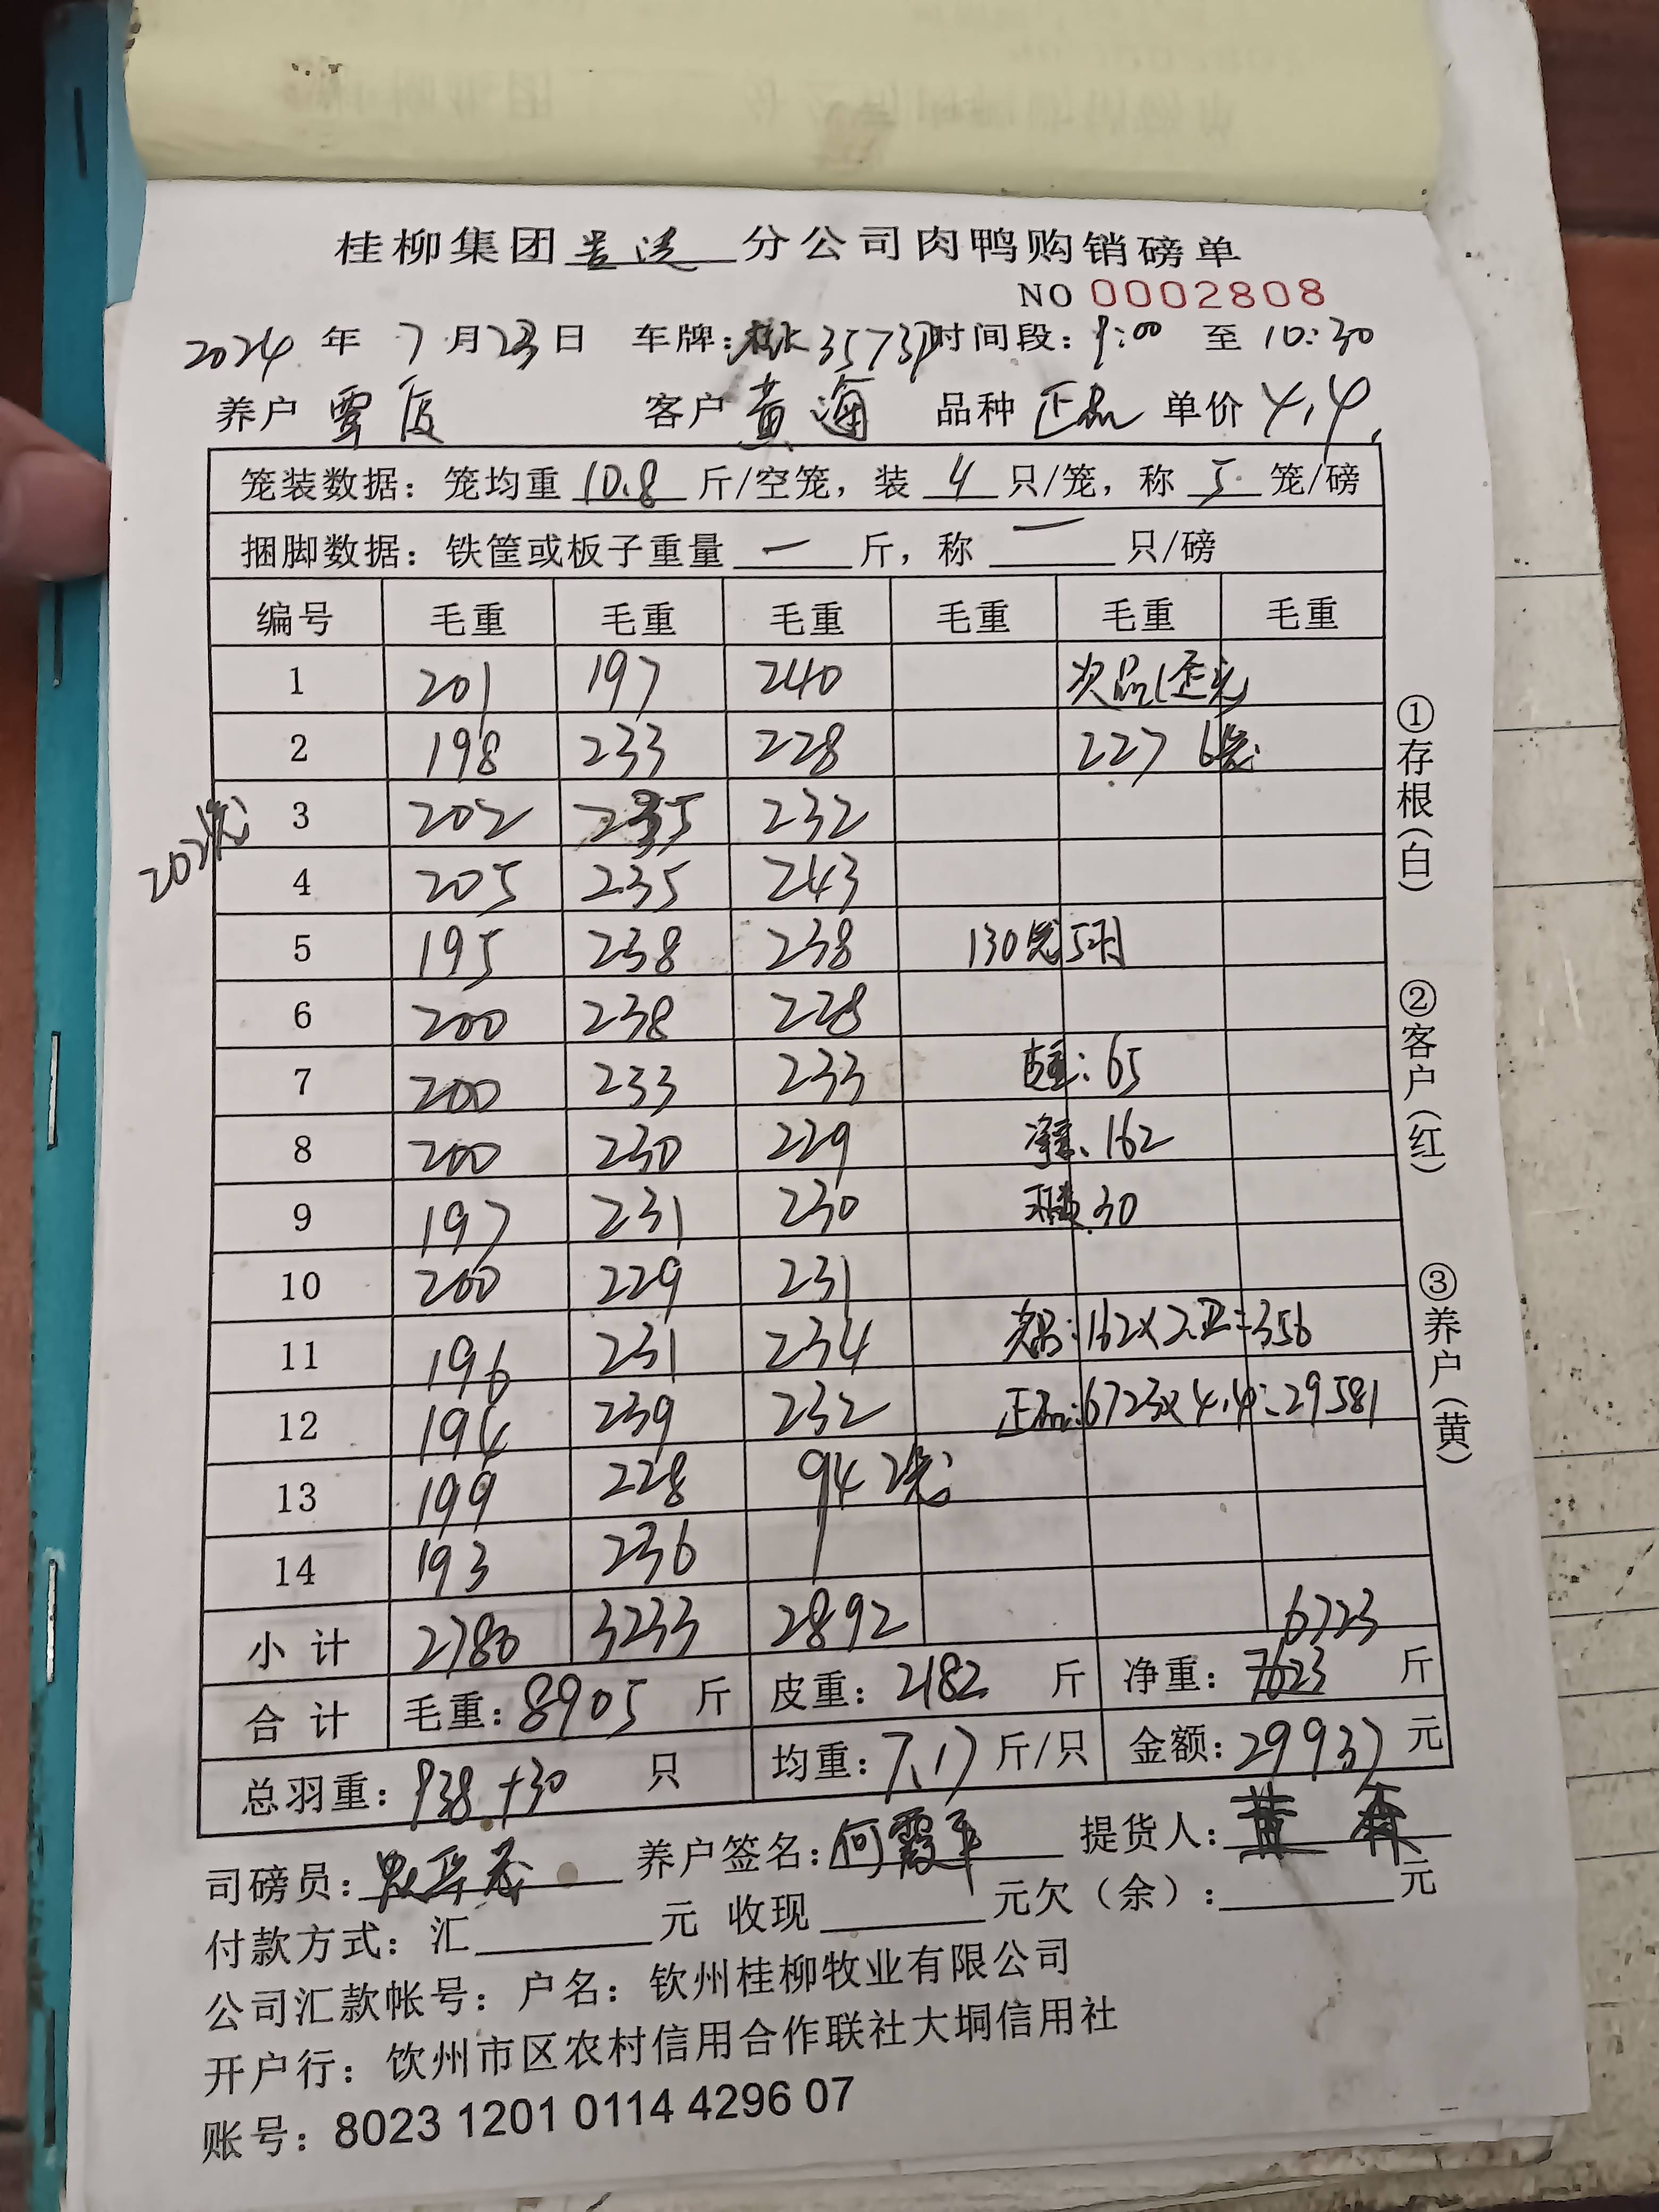 桂柳集团 分公司肉鸭购销磅单
NO 0002808
2024 年 7 月 23 日 车牌: 3573 时间段: 9:00 至 10:30
养户 覃 客户 黄海 品种 正品 单价 4.4
笼装数据: 笼均重 10.8 斤/空笼, 装 4 只/笼, 称 5 笼/磅
捆脚数据: 铁筐或板子重量 一 斤, 称 一 只/磅
编号 毛重 毛重 毛重 毛重 毛重 毛重
1 201 197 240 次品
2 198 233 228 227 6笼
202笼
3 202 235 232
4 205 235 243
5 195 238 238 130笼5只
6 200 238 228
7 200 233 233 皮重: 65
8 200 230 229 净重: 162
9 197 231 230 只数 30
10 200 229 231
11 196 231 234 次品: 162×2.2=356
12 194 239 232 正品: 6723×4.4=29581
13 199 228 94 2笼
14 193 236
小 计 2780 3233 2892 6723
合 计 毛重: 8905 斤 皮重: 2182 斤 净重: 7623 斤
总羽重: 938+30 只 均重: 7.17 斤/只 金额: 29937 元
司磅员: 养户签名: 何霞 提货人: 黄
付款方式: 汇 元 收现 元欠(余): 元
公司汇款帐号: 户名: 钦州桂柳牧业有限公司
开户行: 钦州市区农村信用合作联社大垌信用社
账号: 8023 1201 0114 4296 07
①存根(白)
②客户(红)
③养户(黄)